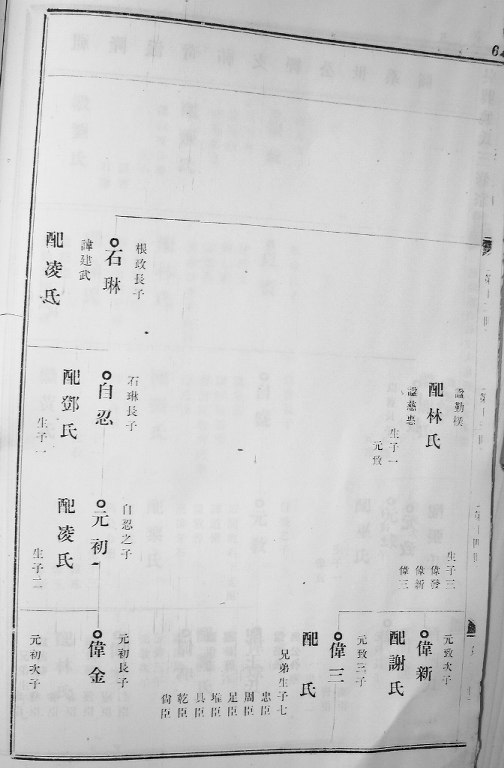 諡勤樸
配林氏
諡慈惠
生子一
元致
生子三
偉發
偉新
偉三
元致次子
偉新
配謝氏
元致三子
偉三
配 氏
兄弟生子七
忠臣
周臣
足臣
具臣
乾臣
根政長子
石琳
諱建武
配凌氏
石琳長子
自忍
配鄧氏
生子一
自忍之子
元初
配凌氏
生子二
元初長子
偉金
元初次子